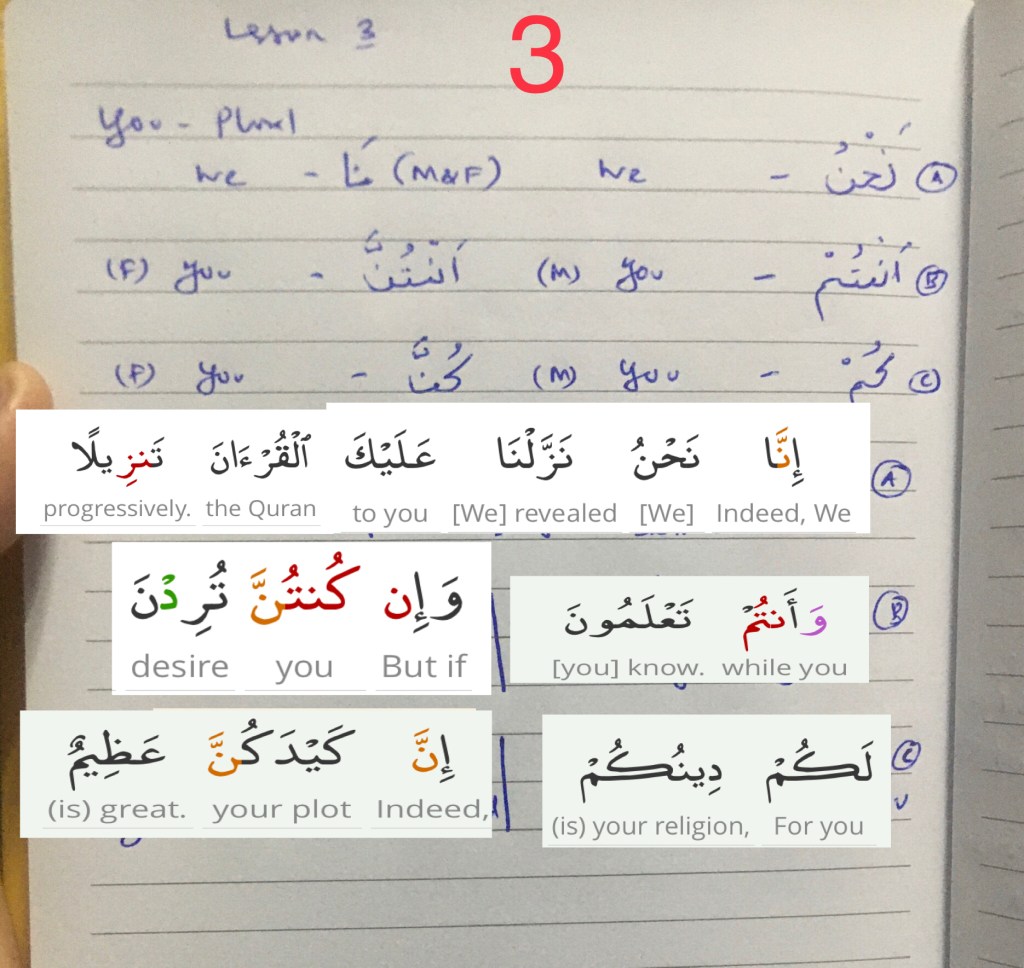 Lesson 3 3
You - Plural
Ⓐ نَحْنُ - we نَا (M&F) - we
Ⓑ اَنْتُمْ - you (M) اَنْتُنَّ - you (F)
Ⓒ كُمْ - you (M) كُنَّ - you (F)
Ⓐ إِنَّا نَحْنُ نَزَّلْنَا عَلَيْكَ ٱلْقُرْءَانَ تَنزِيلًا
Indeed, We [We] [We] revealed to you the Quran progressively.
Ⓑ وَأَنتُمْ تَعْلَمُونَ
while you [you] know.
وَإِن كُنتُنَّ تُرِدْنَ
But if you desire
Ⓒ لَكُمْ دِينُكُمْ
For you (is) your religion,
إِنَّ كَيْدَكُنَّ عَظِيمٌ
Indeed, your plot (is) great.